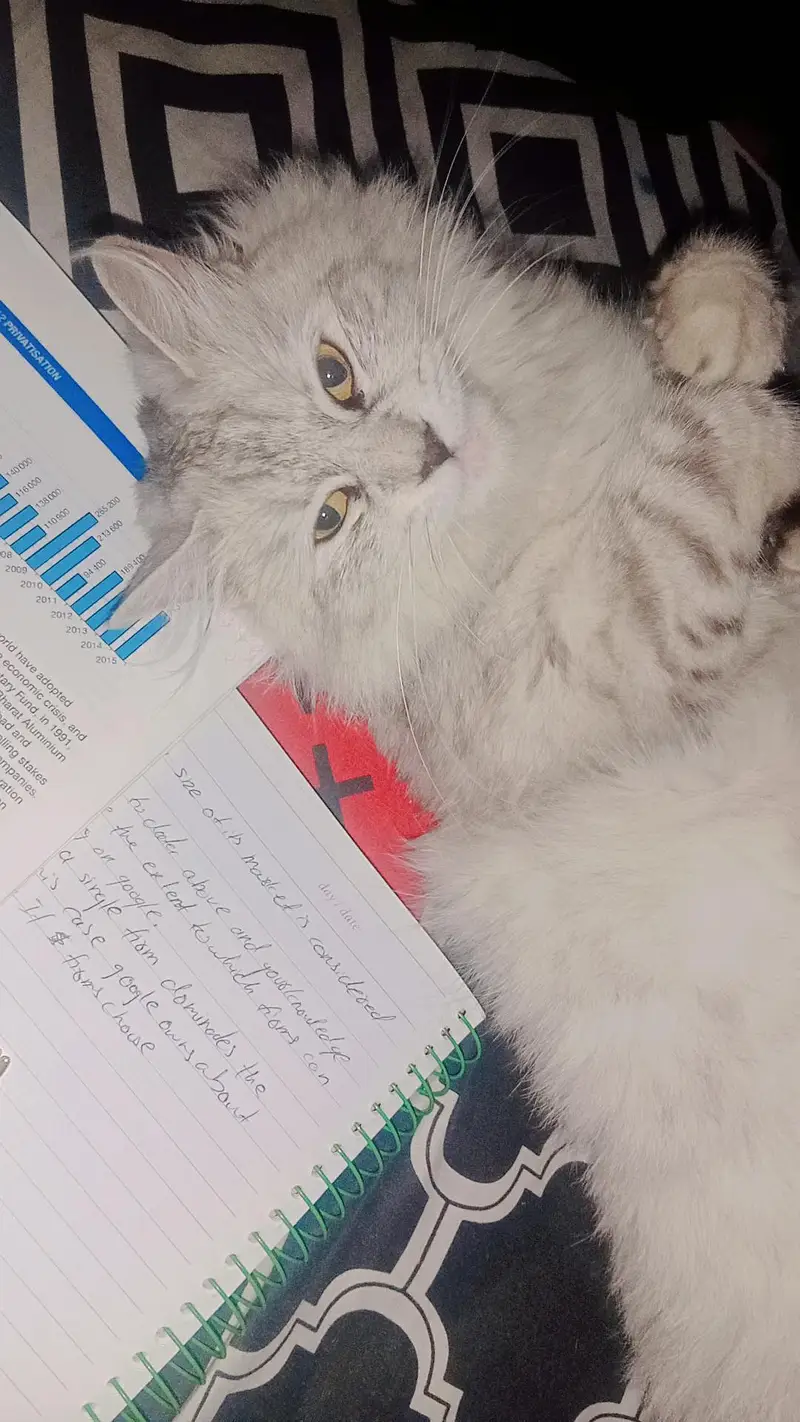 2 PRIVATISATION
140 000
116 000
138 000
110 900
265 200
213 600
94 400
169 400
08
2009
2010
2011
2012
2013
2014
2015
orld have adopted
economic crisis, and
tary Fund, in 1991,
Bharat Aluminium
ead and
elling stakes
mpanies.
ration
on
day / date
size of its market is considered
to data above and your knowledge
the extent to which firms can
y on google.
a single firm dominades the
is case google owns about
If $ firms chouse